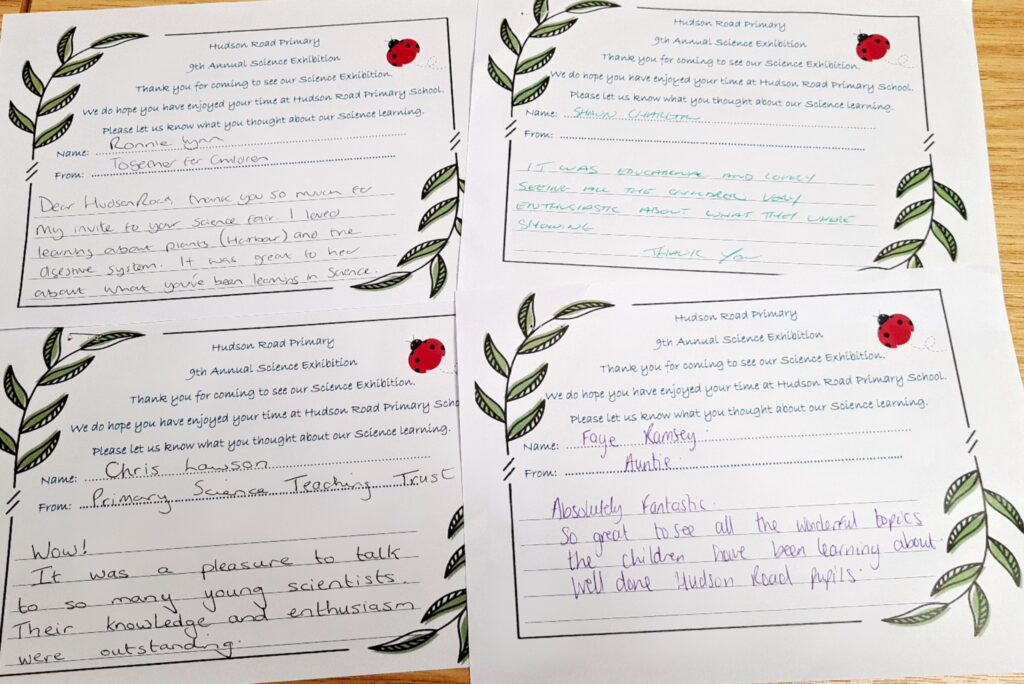 Hudson Road Primary
9th Annual Science Exhibition
Thank you for coming to see our Science Exhibition.
We do hope you have enjoyed your time at Hudson Road Primary School.
Please let us know what you thought about our Science learning.
Name: Ronnie Lynn
From: Together for Children
Dear Hudson Road, thank you so much for
my invite to your science fair. I loved
learning about plants (Harbour) and the
digestive system. It was great to hear
about what you've been learning in Science.
Hudson Road Primary
9th Annual Science Exhibition
Thank you for coming to see our Science Exhibition.
We do hope you have enjoyed your time at Hudson Road Primary School.
Please let us know what you thought about our Science learning.
Name: SHAUN
From:
IT WAS EDUCATIONAL AND LOVELY
SEEING ALL THE CHILDREN VERY
ENTHUSIASTIC ABOUT WHAT THEY WHERE
SHOWING
THANK YOU
Hudson Road Primary
9th Annual Science Exhibition
Thank you for coming to see our Science Exhibition.
We do hope you have enjoyed your time at Hudson Road Primary Scho
Please let us know what you thought about our Science learning.
Name: Chris Lawson
From: Primary Science Teaching Trust
Wow!
It was a pleasure to talk
to so many young scientists.
Their knowledge and enthusiasm
were outstanding.
Hudson Road Primary
9th Annual Science Exhibition
Thank you for coming to see our Science Exhibition.
We do hope you have enjoyed your time at Hudson Road Primary School.
Please let us know what you thought about our Science learning.
Name: Faye Ramsey
From: Auntie
Absolutely Fantastic.
So great to see all the wonderful topics
the children have been learning about.
Well done Hudson Road pupils.